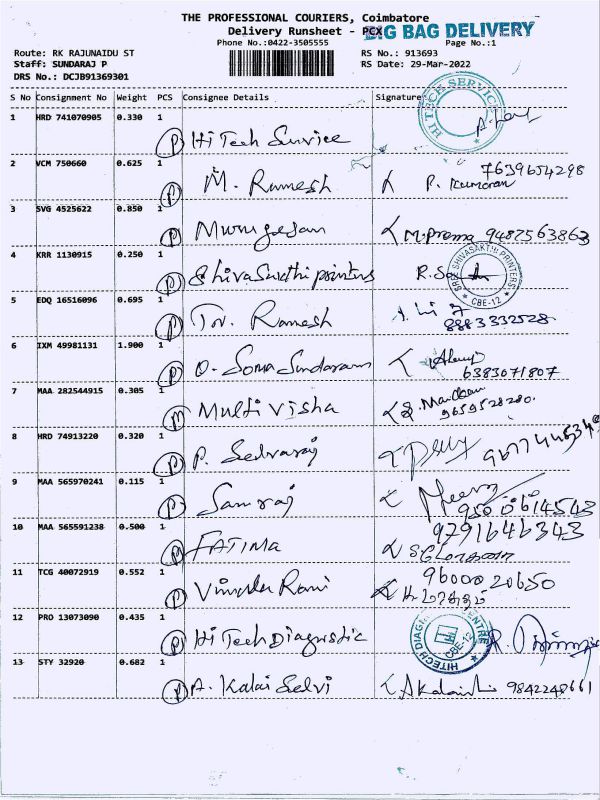 THE PROFESSIONAL COURIERS, Coimbatore
Delivery Runsheet - PCX
BIG BAG DELIVERY
Phone No.:0422-3505555
Page No.:1
Route: RK RAJUNAIDU ST
RS No.: 913693
Staff: SUNDARAJ P
RS Date: 29-Mar-2022
DRS No.: DCJB91369301
S No Consignment No Weight PCS Consignee Details Signature
1 HRD 741070905 0.330 1
P Hi Tech Survice
HI TECH SERVICE
2 VCM 750660 0.625 1
P M. Ramesh P. Kumaran 7639654298
3 SVG 4525622 0.850 1
P Murugesan M. Prema 9487563863
4 KRR 1130915 0.250 1
P Shiva Sakthi printers R.
SHIVASAKTHI PRINTERS
* CBE-12 *
5 EDQ 16516096 0.695 1
P Tr. Ramesh 8883332528
6 IXM 49981131 1.900 1
P O. Soma Sundaram 6383071807
7 MAA 282544915 0.305 1
M Multi Visha 9659528280.
8 HRD 74913220 0.320 1
P P. Selvaraj
9 MAA 565970241 0.115 1
P Samraj
10 MAA 565591238 0.500 1 9791646343
FATIMA
11 TCG 40072919 0.552 1
P Vimala Rani 9600020650
12 PRO 13073090 0.435 1
P Hi Tech Diagnostic R.
HITECH DIAGNOSTIC CENTRE
CBE-12
13 STY 32920 0.682 1
P A. Kalai Selvi A Kalai 9842248661